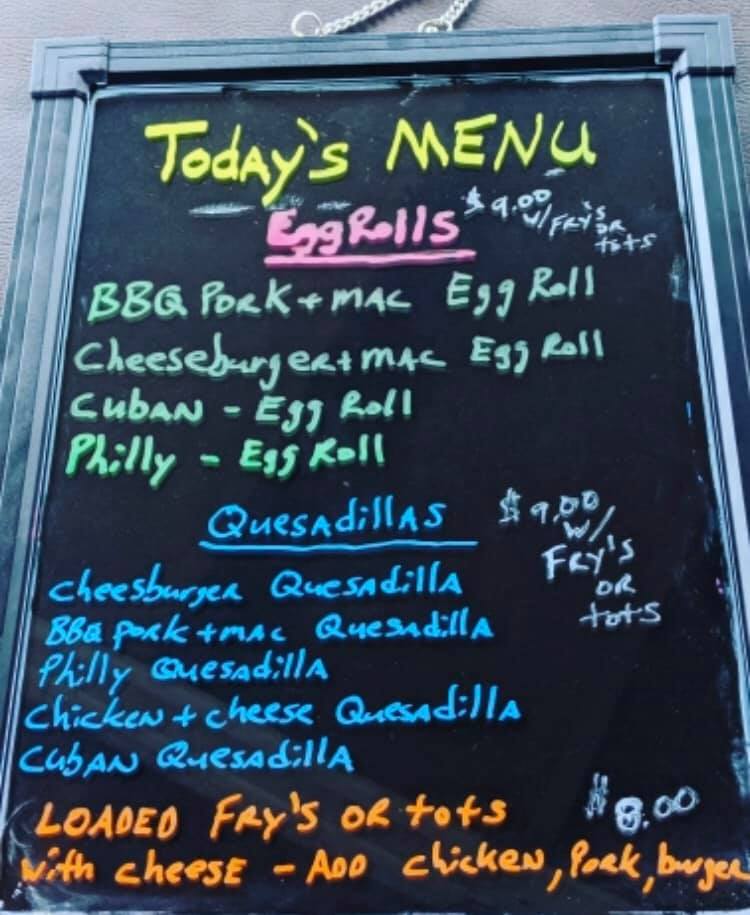 Today's MENU
Egg Rolls $9.00
w/ FRY'S
OR
tots
BBQ PORK + MAC Egg Roll
Cheeseburger + MAC Egg Roll
CUBAN - Egg Roll
Philly - Egg Roll
QuesAdillAS $9.00
w/
FRY'S
OR
tots
Cheesburger QuesAdillA
BBQ pork + mac QuesAdillA
Philly QuesAdillA
Chicken + cheese QuesAdillA
CUBAN QuesAdillA
LOADED FRY'S OR tots $8.00
with cheese - ADD chicken, Pork, burger